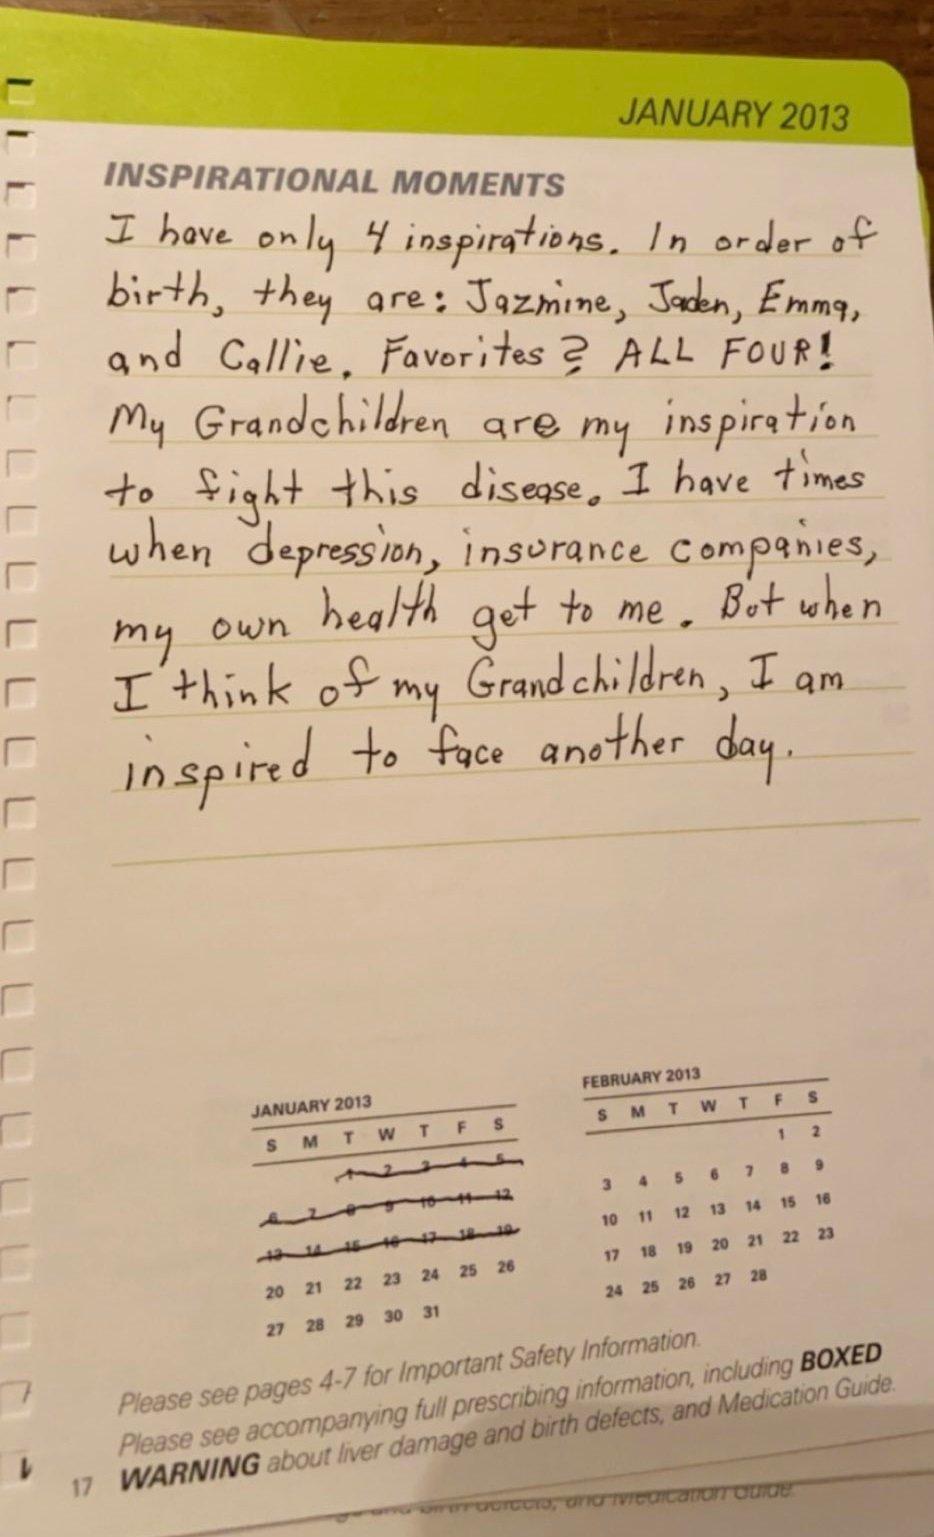 JANUARY 2013
INSPIRATIONAL MOMENTS
I have only 4 inspirations. In order of
birth, they are: Jazmine, Jaden, Emma,
and Callie. Favorites? ALL FOUR!
My Grandchildren are my inspiration
to fight this disease. I have times
when depression, insurance companies,
my own health get to me. But when
I think of my Grandchildren, I am
inspired to face another day.
JANUARY 2013
S M T W T F S
1 2 3 4 5
6 7 8 9 10 11 12
13 14 15 16 17 18 19
20 21 22 23 24 25 26
27 28 29 30 31
FEBRUARY 2013
S M T W T F S
1 2
3 4 5 6 7 8 9
10 11 12 13 14 15 16
17 18 19 20 21 22 23
24 25 26 27 28
Please see pages 4-7 for Important Safety Information.
Please see accompanying full prescribing information, including BOXED
WARNING about liver damage and birth defects, and Medication Guide.
17
birth defects, and Medication Guide.